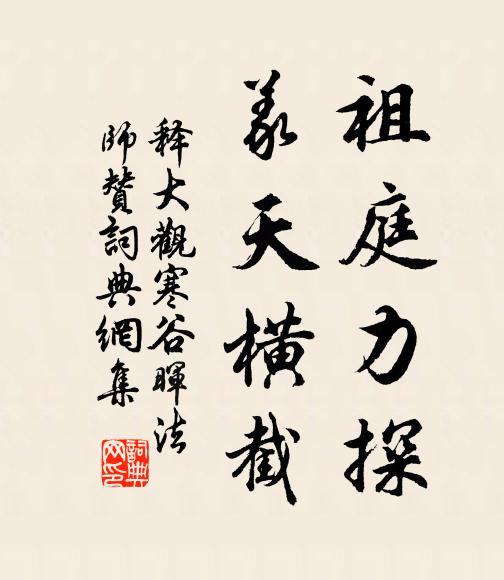 祖庭力探
義天橫截
释大觀寒谷暉法
師贊詞典網集
詞典網印